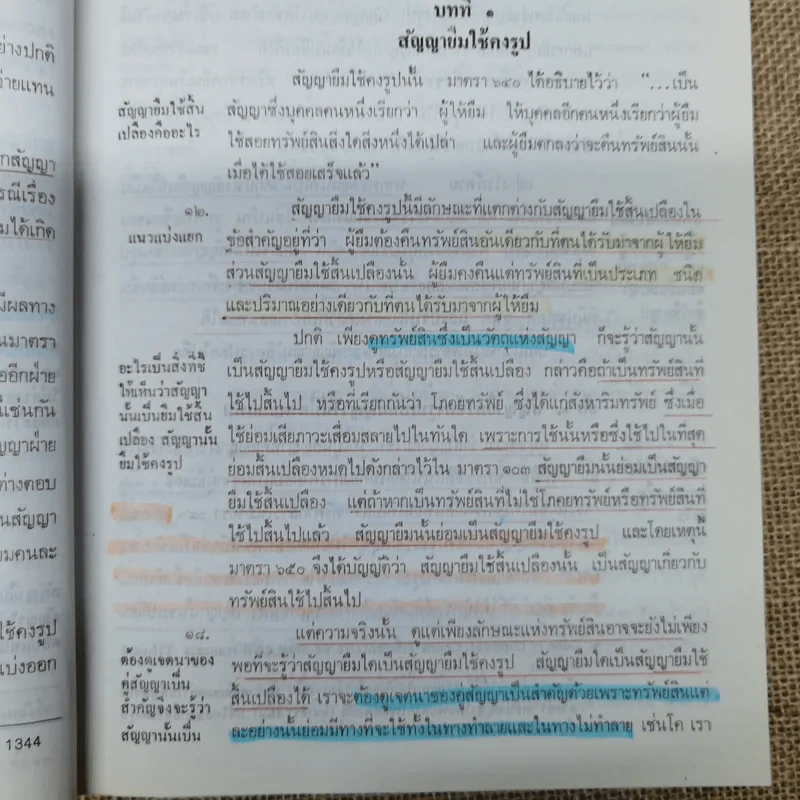 บทที่ ๑
สัญญายืมใช้คงรูป
สัญญายืมใช้คงรูปนั้น มาตรา ๖๔๐ ได้อธิบายไว้ว่า “...เป็น
สัญญาซึ่งบุคคลคนหนึ่งเรียกว่า ผู้ให้ยืม ให้บุคคลอีกคนหนึ่งเรียกว่าผู้ยืม
ใช้สอยทรัพย์สินสิ่งใดสิ่งหนึ่งได้เปล่า และผู้ยืมตกลงว่าจะคืนทรัพย์สินนั้น
เมื่อได้ใช้สอยเสร็จแล้ว”
สัญญายืมใช้สิ้น
เปลืองคืออะไร
๑๒.
แนวแบ่งแยก
สัญญายืมใช้คงรูปนี้มีลักษณะที่แตกต่างกับสัญญายืมใช้สิ้นเปลืองใน
ข้อสำคัญอยู่ที่ว่า ผู้ยืมต้องคืนทรัพย์สินอันเดียวกับที่ตนได้รับมาจากผู้ให้ยืม
ส่วนสัญญายืมใช้สิ้นเปลืองนั้น ผู้ยืมคงคืนแต่ทรัพย์สินที่เป็นประเภท ชนิด
และปริมาณอย่างเดียวกับที่ตนได้รับมาจากผู้ให้ยืม
ปกติ เพียงดูทรัพย์สินซึ่งเป็นวัตถุแห่งสัญญา ก็จะรู้ว่าสัญญานั้น
เป็นสัญญายืมใช้คงรูปหรือสัญญายืมใช้สิ้นเปลือง กล่าวคือถ้าเป็นทรัพย์สินที่
ใช้ไปสิ้นไป หรือที่เรียกกันว่า โภคยทรัพย์ ซึ่งได้แก่สังหาริมทรัพย์ ซึ่งเมื่อ
ใช้ย่อมเสียภาวะเสื่อมสลายไปในทันใด เพราะการใช้นั้นหรือซึ่งใช้ไปในที่สุด
ย่อมสิ้นเปลืองหมดไปดังกล่าวไว้ใน มาตรา ๑๐๓ สัญญายืมนั้นย่อมเป็นสัญญา
ยืมใช้สิ้นเปลือง แต่ถ้าหากเป็นทรัพย์สินที่ไม่ใช่โภคยทรัพย์หรือทรัพย์สินที่
ใช้ไปสิ้นไปแล้ว สัญญายืมนั้นย่อมเป็นสัญญายืมใช้คงรูป และโดยเหตุนี้
มาตรา ๖๕๐ จึงได้บัญญัติว่า สัญญายืมใช้สิ้นเปลืองนั้น เป็นสัญญาเกี่ยวกับ
ทรัพย์สินใช้ไปสิ้นไป
อะไรเป็นสิ่งที่ชี้
ให้เห็นว่าสัญญา
นั้นเป็นยืมใช้สิ้น
เปลือง สัญญานั้น
ยืมใช้คงรูป
๑๘.
ต้องดูเจตนาของ
คู่สัญญาเป็น
สำคัญจึงจะรู้ว่า
สัญญานั้นเป็น
แต่ความจริงนั้น ดูแต่เพียงลักษณะแห่งทรัพย์สินอาจจะยังไม่เพียง
พอที่จะรู้ว่าสัญญายืมใดเป็นสัญญายืมใช้คงรูป สัญญายืมใดเป็นสัญญายืมใช้
สิ้นเปลืองได้ เราจะต้องดูเจตนาของคู่สัญญาเป็นสำคัญด้วยเพราะทรัพย์สินแต่
ละอย่างนั้นย่อมมีทางที่จะใช้ทั้งในทางทำลายและในทางไม่ทำลาย เช่นโค เรา
1344